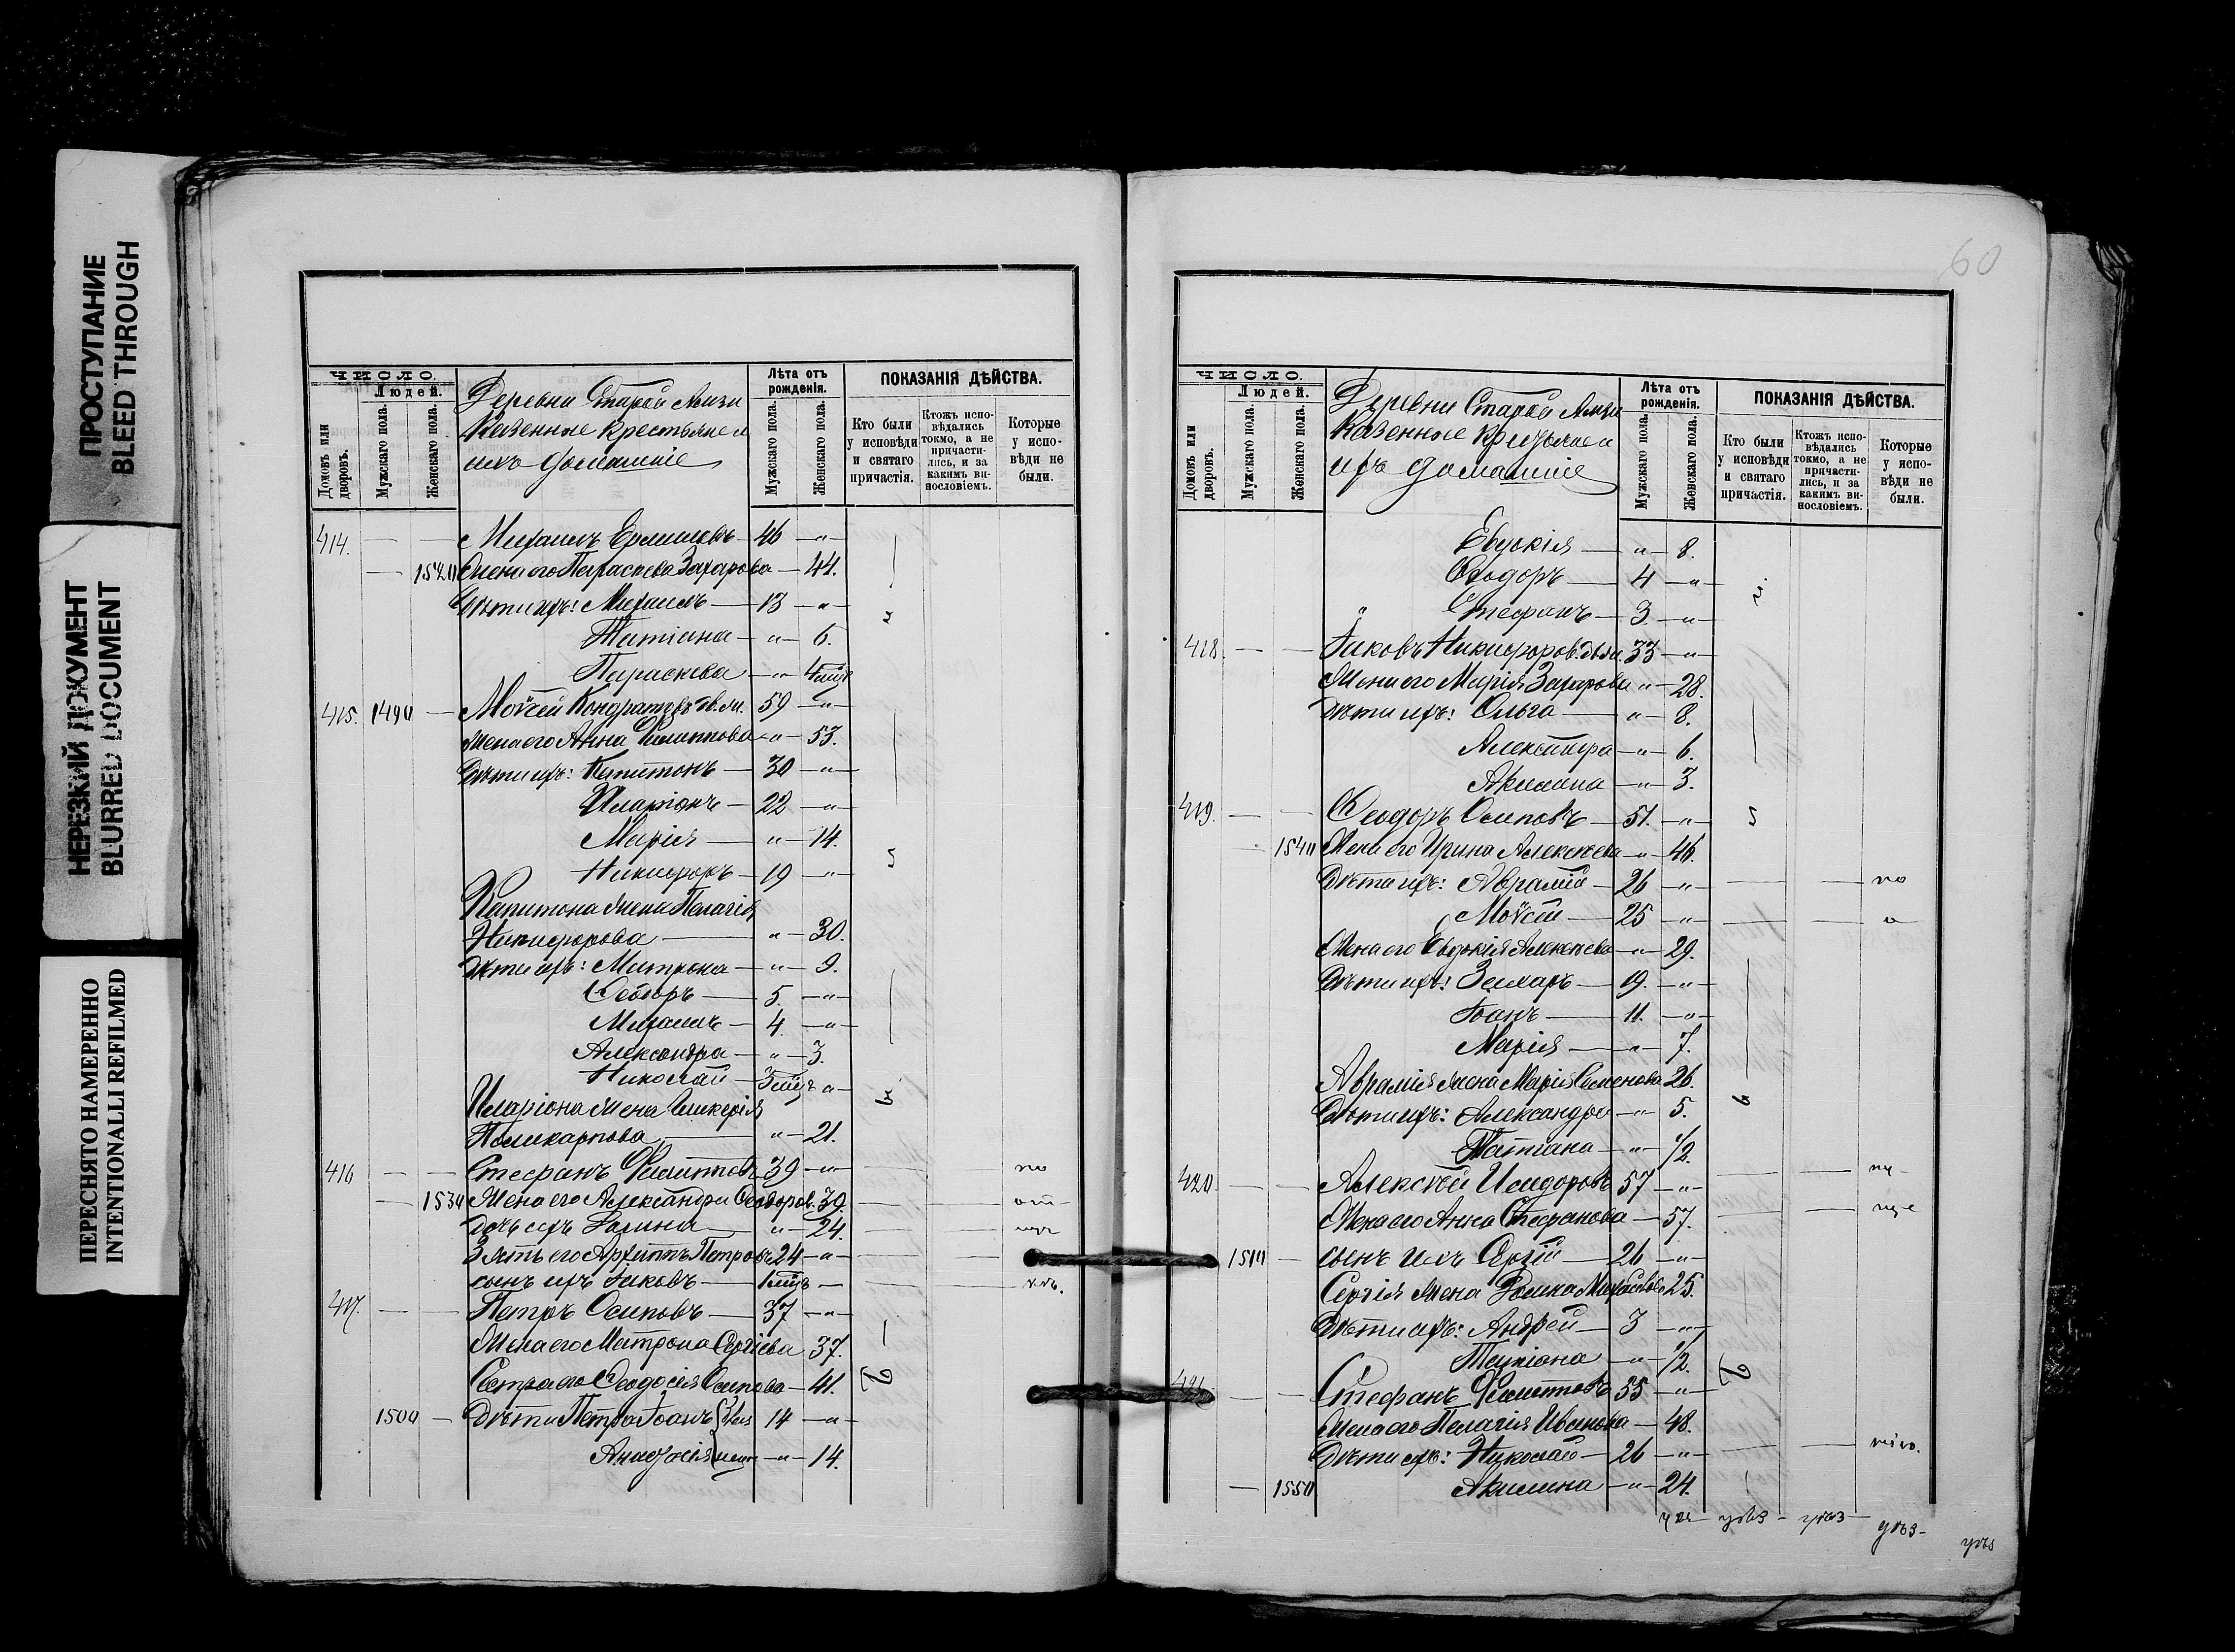 ПРОСТУПАНИЕ
BLEED THROUGH
НЕРЕЗКИЙ ДОКУМЕНТ
BLURRED DOCUMENT
ПЕРЕСНЯТО НАМЕРЕННО
INTENTIONALLI REFILMED
ЧИСЛО.
Людей.
Домовъ или дворовъ.
Мужскаго пола.
Женскаго пола.
Деревни Старой
Казенные крестьяне и
ихъ домашніе
Лѣта отъ рожденія.
Мужскаго пола.
Женскаго пола.
ПОКАЗАНІЯ ДѢЙСТВА.
Кто были у исповѣди и святаго причастія.
Ктожъ исповѣдались токмо, а не причастились, и за какимъ винословіемъ.
Которые у исповѣди не были.
414. — — Михаилъ 46 — "
— 1520 Жена его Параскева Захарова — 44.
Дѣти ихъ: Михаилъ — 13 — "
Татіана — " — 6.
Параскева — " — 4
415. 1490 — Моѵсей Кондратьевъ 59 — "
Жена его Анна Филиппова — " — 53.
Дѣти ихъ: Капитонъ — 30 — "
Иларіонъ — 22 — "
Марія — " — 14.
Никифоръ — 19 — "
Капитона жена Пелагія
Никифорова — " — 30.
Дѣти ихъ: Матрона — " — 9.
Ѳеодоръ — 5. — "
Михаилъ — 4. — "
Александра — " — 3.
Николай — 3 — "
Иларіона жена Гликерія
Поликарпова — " — 21.
416 — — Стефанъ Филипповъ 39 — "
— 1530 Жена его Александра Ѳеодоров. 39.
Дочь ихъ Галина — " — 24.
Зять его Архиппъ Петровъ 24 — "
сынъ ихъ Іаковъ — 1
417. — — Петръ Осиповъ — 37 — "
Жена его Матрона Сергіева 37.
Сестра его Ѳеодосія Осипова — 41.
1500 — Дѣти Петра Іоанъ 14 — "
— " — 14.
60
ЧИСЛО.
Людей.
Домовъ или дворовъ.
Мужскаго пола.
Женскаго пола.
Деревни Старой
Казенные крестьяне и
ихъ домашніе
Лѣта отъ рожденія.
Мужскаго пола.
Женскаго пола.
ПОКАЗАНІЯ ДѢЙСТВА.
Кто были у исповѣди и святаго причастія.
Ктожъ исповѣдались токмо, а не причастились, и за какимъ винословіемъ.
Которые у исповѣди не были.
Евдокія — " — 8.
Ѳеодоръ — 4 — "
Стефанъ — 3. — "
418. — — Іаковъ Никифоров. 33 — "
Жена его Марія Захарова " — 28.
Дѣти ихъ: Ольга — " — 8.
Александра — " — 6.
Акилина — " — 3.
419. — — Ѳеодоръ Осиповъ — 51. — "
1540 Жена его Ирина Алексѣева — " — 46.
Дѣти ихъ: Аврамій — 26 — "
Моѵсей — 25 — "
Жена его Евдокія Алексѣева — " — 29.
Дѣти ихъ: 19. — "
Іоанъ — 11. — "
Марія — " — 7.
Аврамія жена Марія Семенова 26.
Дѣти ихъ: Александра — " — 5.
Татіана — " — 1/2.
420 — — Алексѣй Исидоровъ 57 — "
Жена его Анна Стефанова — 57.
1510 — сынъ ихъ Сергій — 26 — "
Сергія жена 25.
Дѣти ихъ: Андрей — 3 — "
Татіана — " — 1/2.
421 — — Стефанъ Филипповъ 55 — "
Жена его Пелагія Иванова — 48.
Дѣти ихъ: Николай — 26 — "
— 1550 Акилина — " — 24.